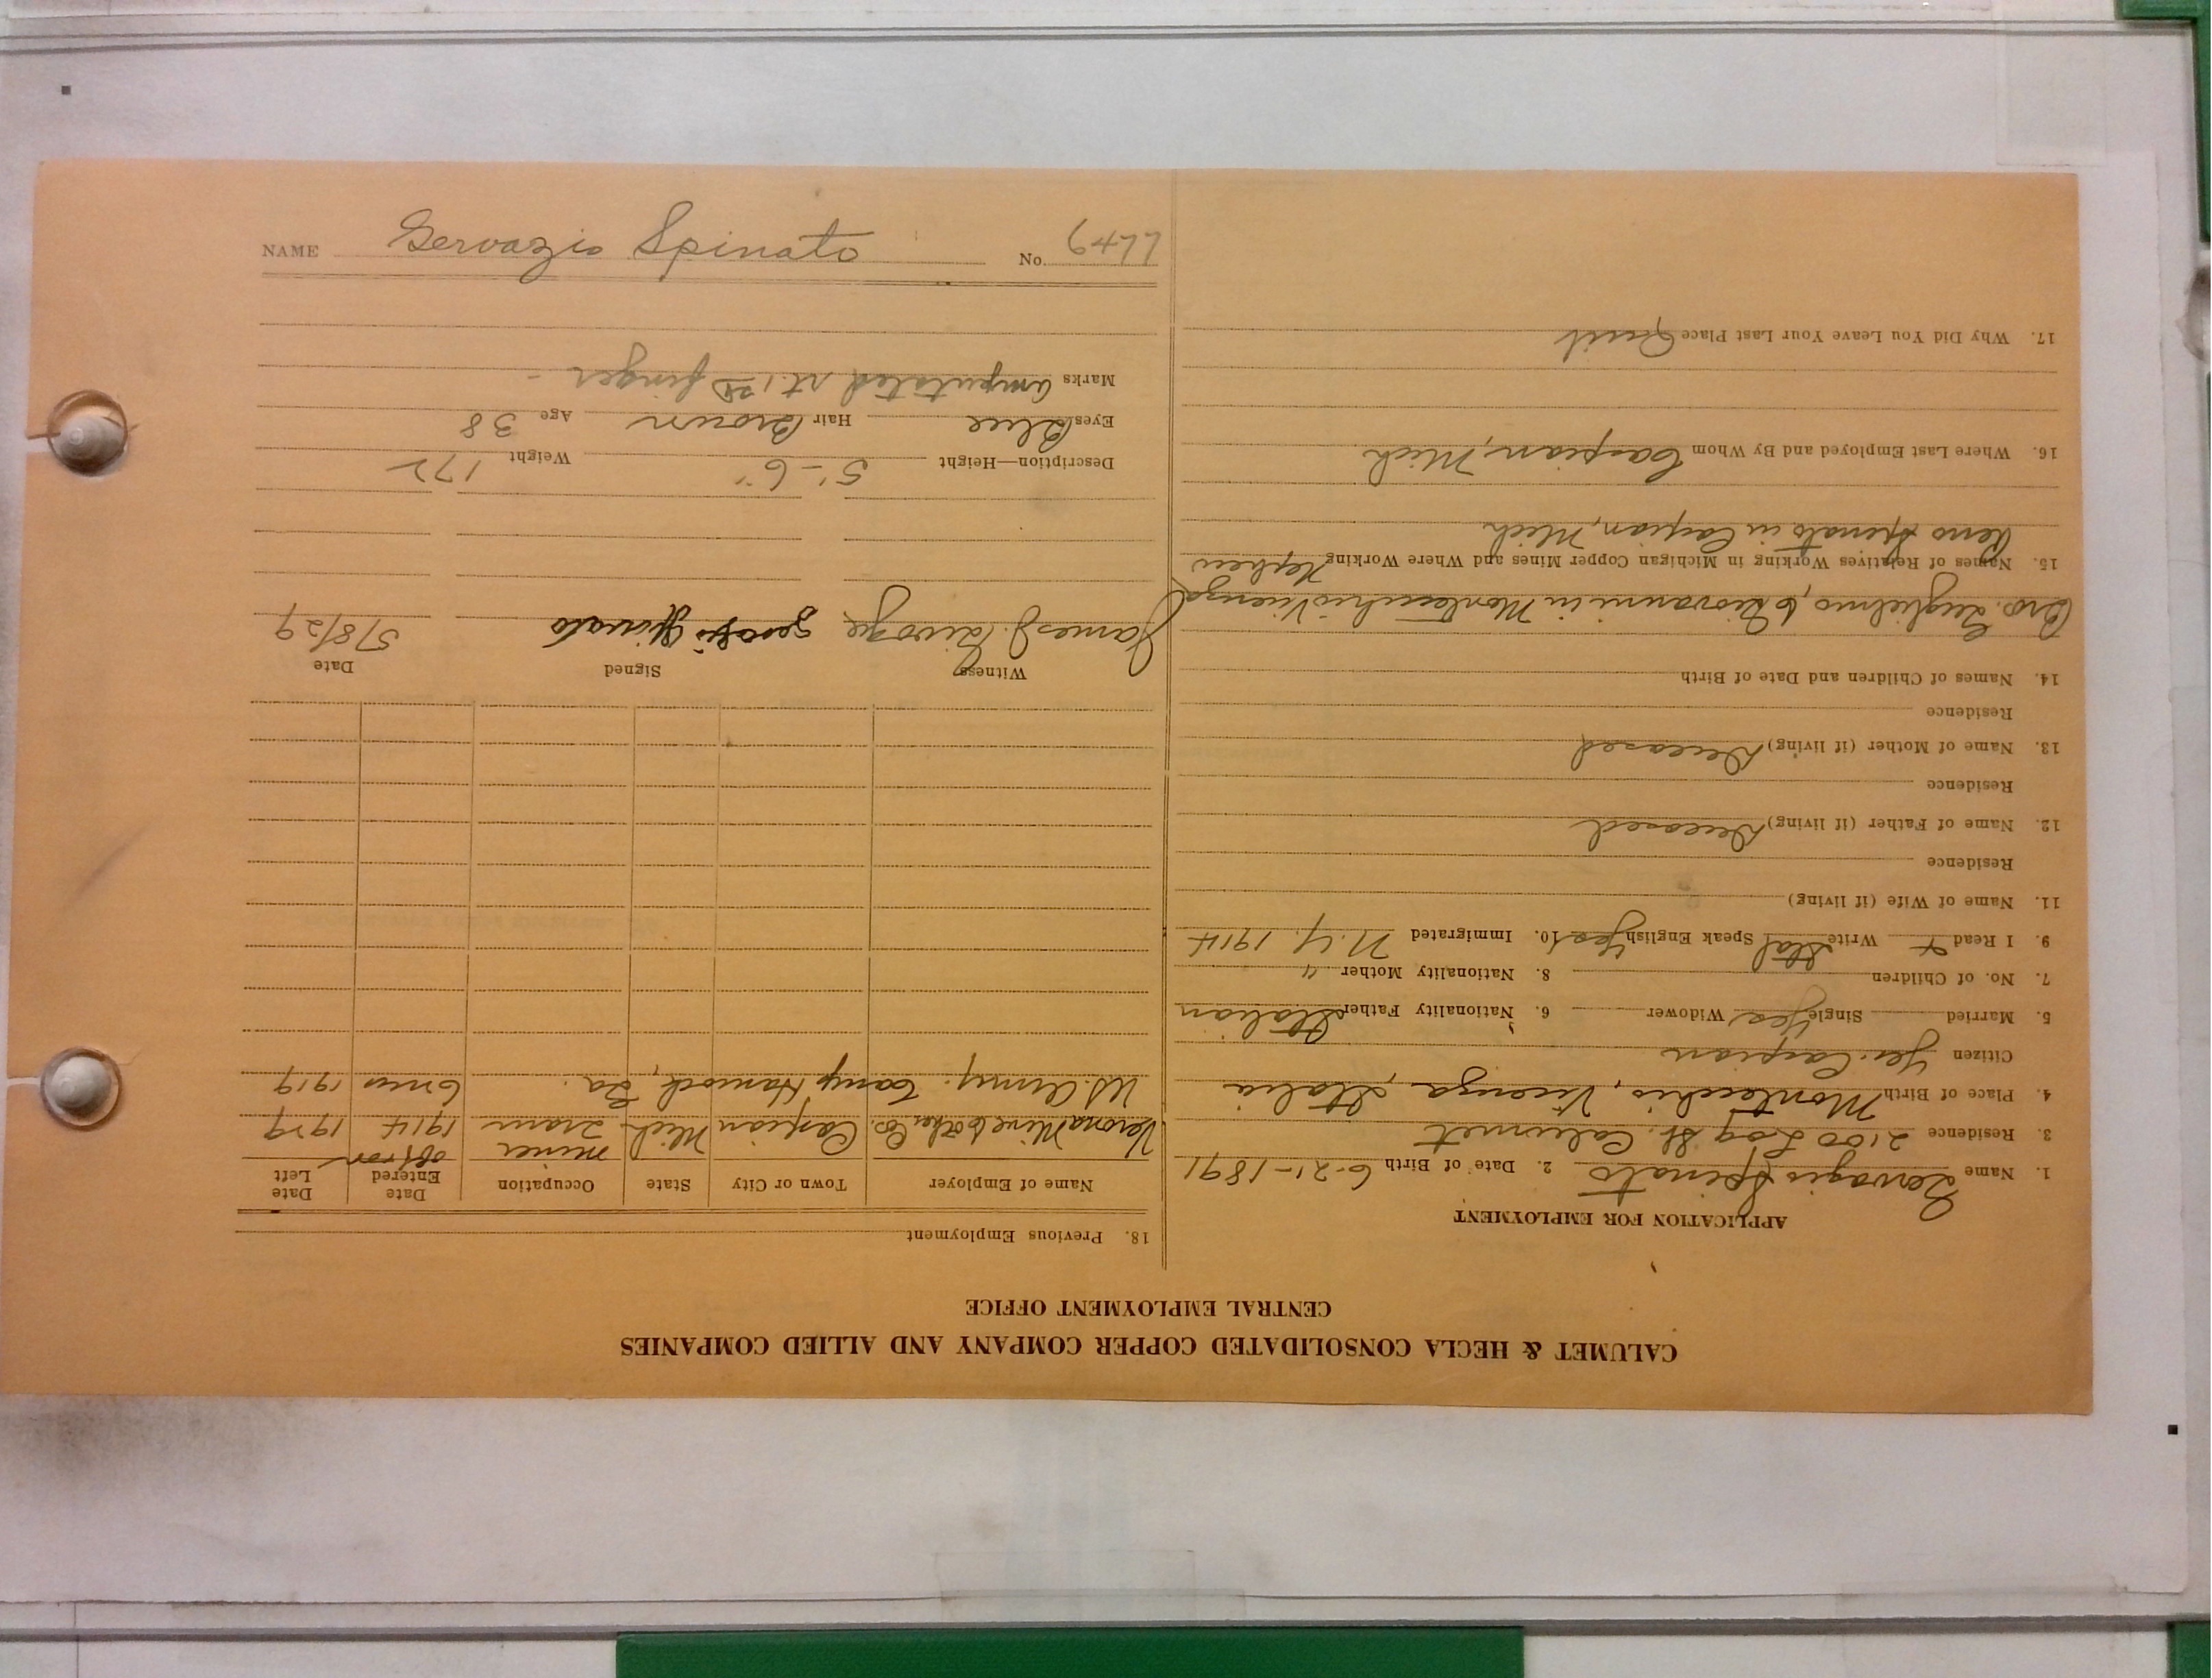 NAME Gervazio Spinato No. 6477
CALUMET & HECLA CONSOLIDATED COPPER COMPANY AND ALLIED COMPANIES
CENTRAL EMPLOYMENT OFFICE
APPLICATION FOR EMPLOYMENT
1. Name Gervazio Spinato 2. Date of Birth 6-21-1891
3. Residence 2100 Log St. Calumet
4. Place of Birth Montecchio, Vicenza, Italia
Citizen Yes. Caspian
5. Married Single Yes Widower 6. Nationality Father Italian
7. No. of Children 8. Nationality Mother "
9. I Read & Write Ital Speak English Yes 10. Immigrated N.Y. 1914
11. Name of Wife (if living)
Residence
12. Name of Father (if living) Deceased
Residence
13. Name of Mother (if living) Deceased
Residence
14. Names of Children and Date of Birth
Bro. Guglielmo, & Giovanni in Montecchio Vicenza
15. Names of Relatives Working in Michigan Copper Mines and Where Working Nephew
Reno Spinato in Caspian, Mich
16. Where Last Employed and By Whom Caspian, Mich
17. Why Did You Leave Your Last Place Quit
18. Previous Employment
Name of Employer Town or City State Occupation Date Entered Date Left
Verona Mine & other Co. Caspian Mich miner tram off & on 1914 1929
U.S. Army. Camp Hancock, Ga. 6 mos 1919
Witness Signed Date
James J. Spinato 5/8/29
Description—Height 5'-6" Weight 172
Eyes Blue Hair Brown Age 38
Marks amputated rt. 1st finger -